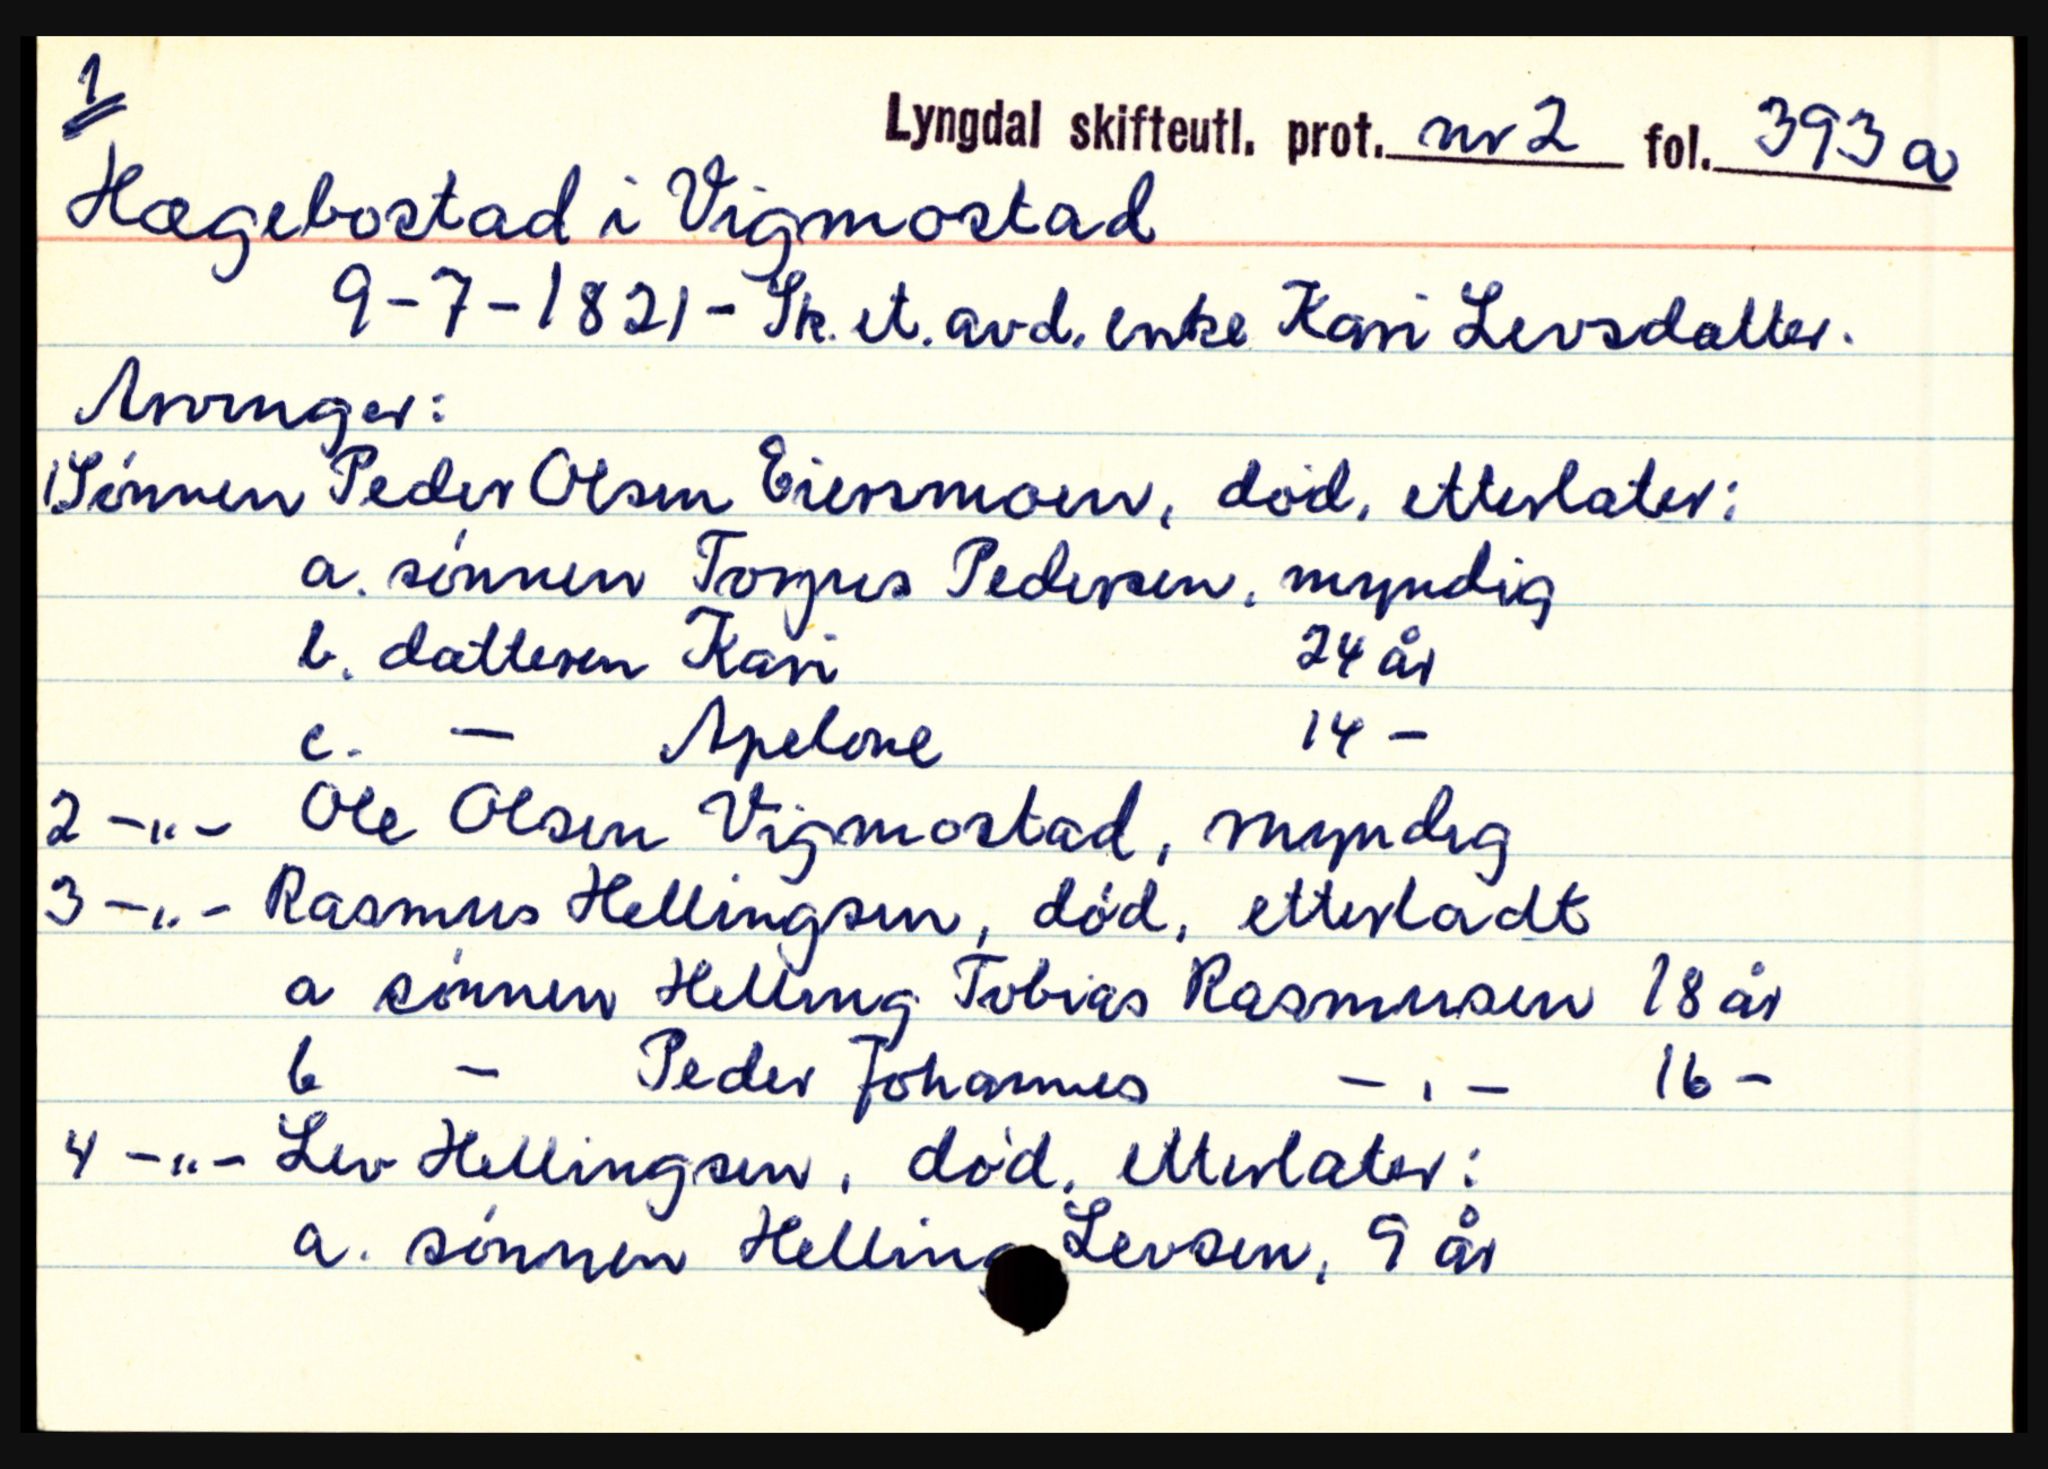 1
Lyngdal skifteutl. prot. nr 2 fol. 393 a
Hægebostad i Vigmostad
9-7-1821 - Sk. et. avd. enke Kari Levsdatter.
Arvinger:
1) Sønnen Peder Olsen Eiersmoen, død, etterlater:
a. sønnen Torjus Pedersen, myndig
b. datteren Kari 24 år
c. — Apelone 14 -
2 -"- Ole Olsen Vigmostad, myndig
3 -"- Rasmus Hellingsen, død, etterladt
a sønnen Helling Tobias Rasmusen 18 år
b - Peder Johannes -"- 16 -
4 -"- Lev Hellingsen, død, etterlater:
a. sønnen Helling Levsen, 9 år